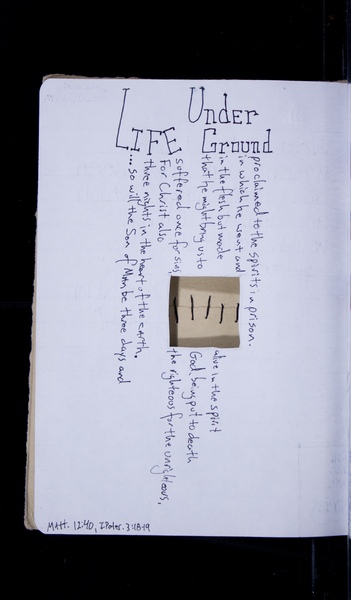 LIFE
UNDER
GROUND
...so will the Son of Man be three days and
three nights in the heart of the earth.
For Christ also
suffered once for sins, the righteous for the unrighteous,
that he might bring us to God, being put to death
in the flesh but made alive in the spirit
in which he went and
proclaimed to the spirits in prison.
Matt. 12:40, 1 Peter. 3:18-19